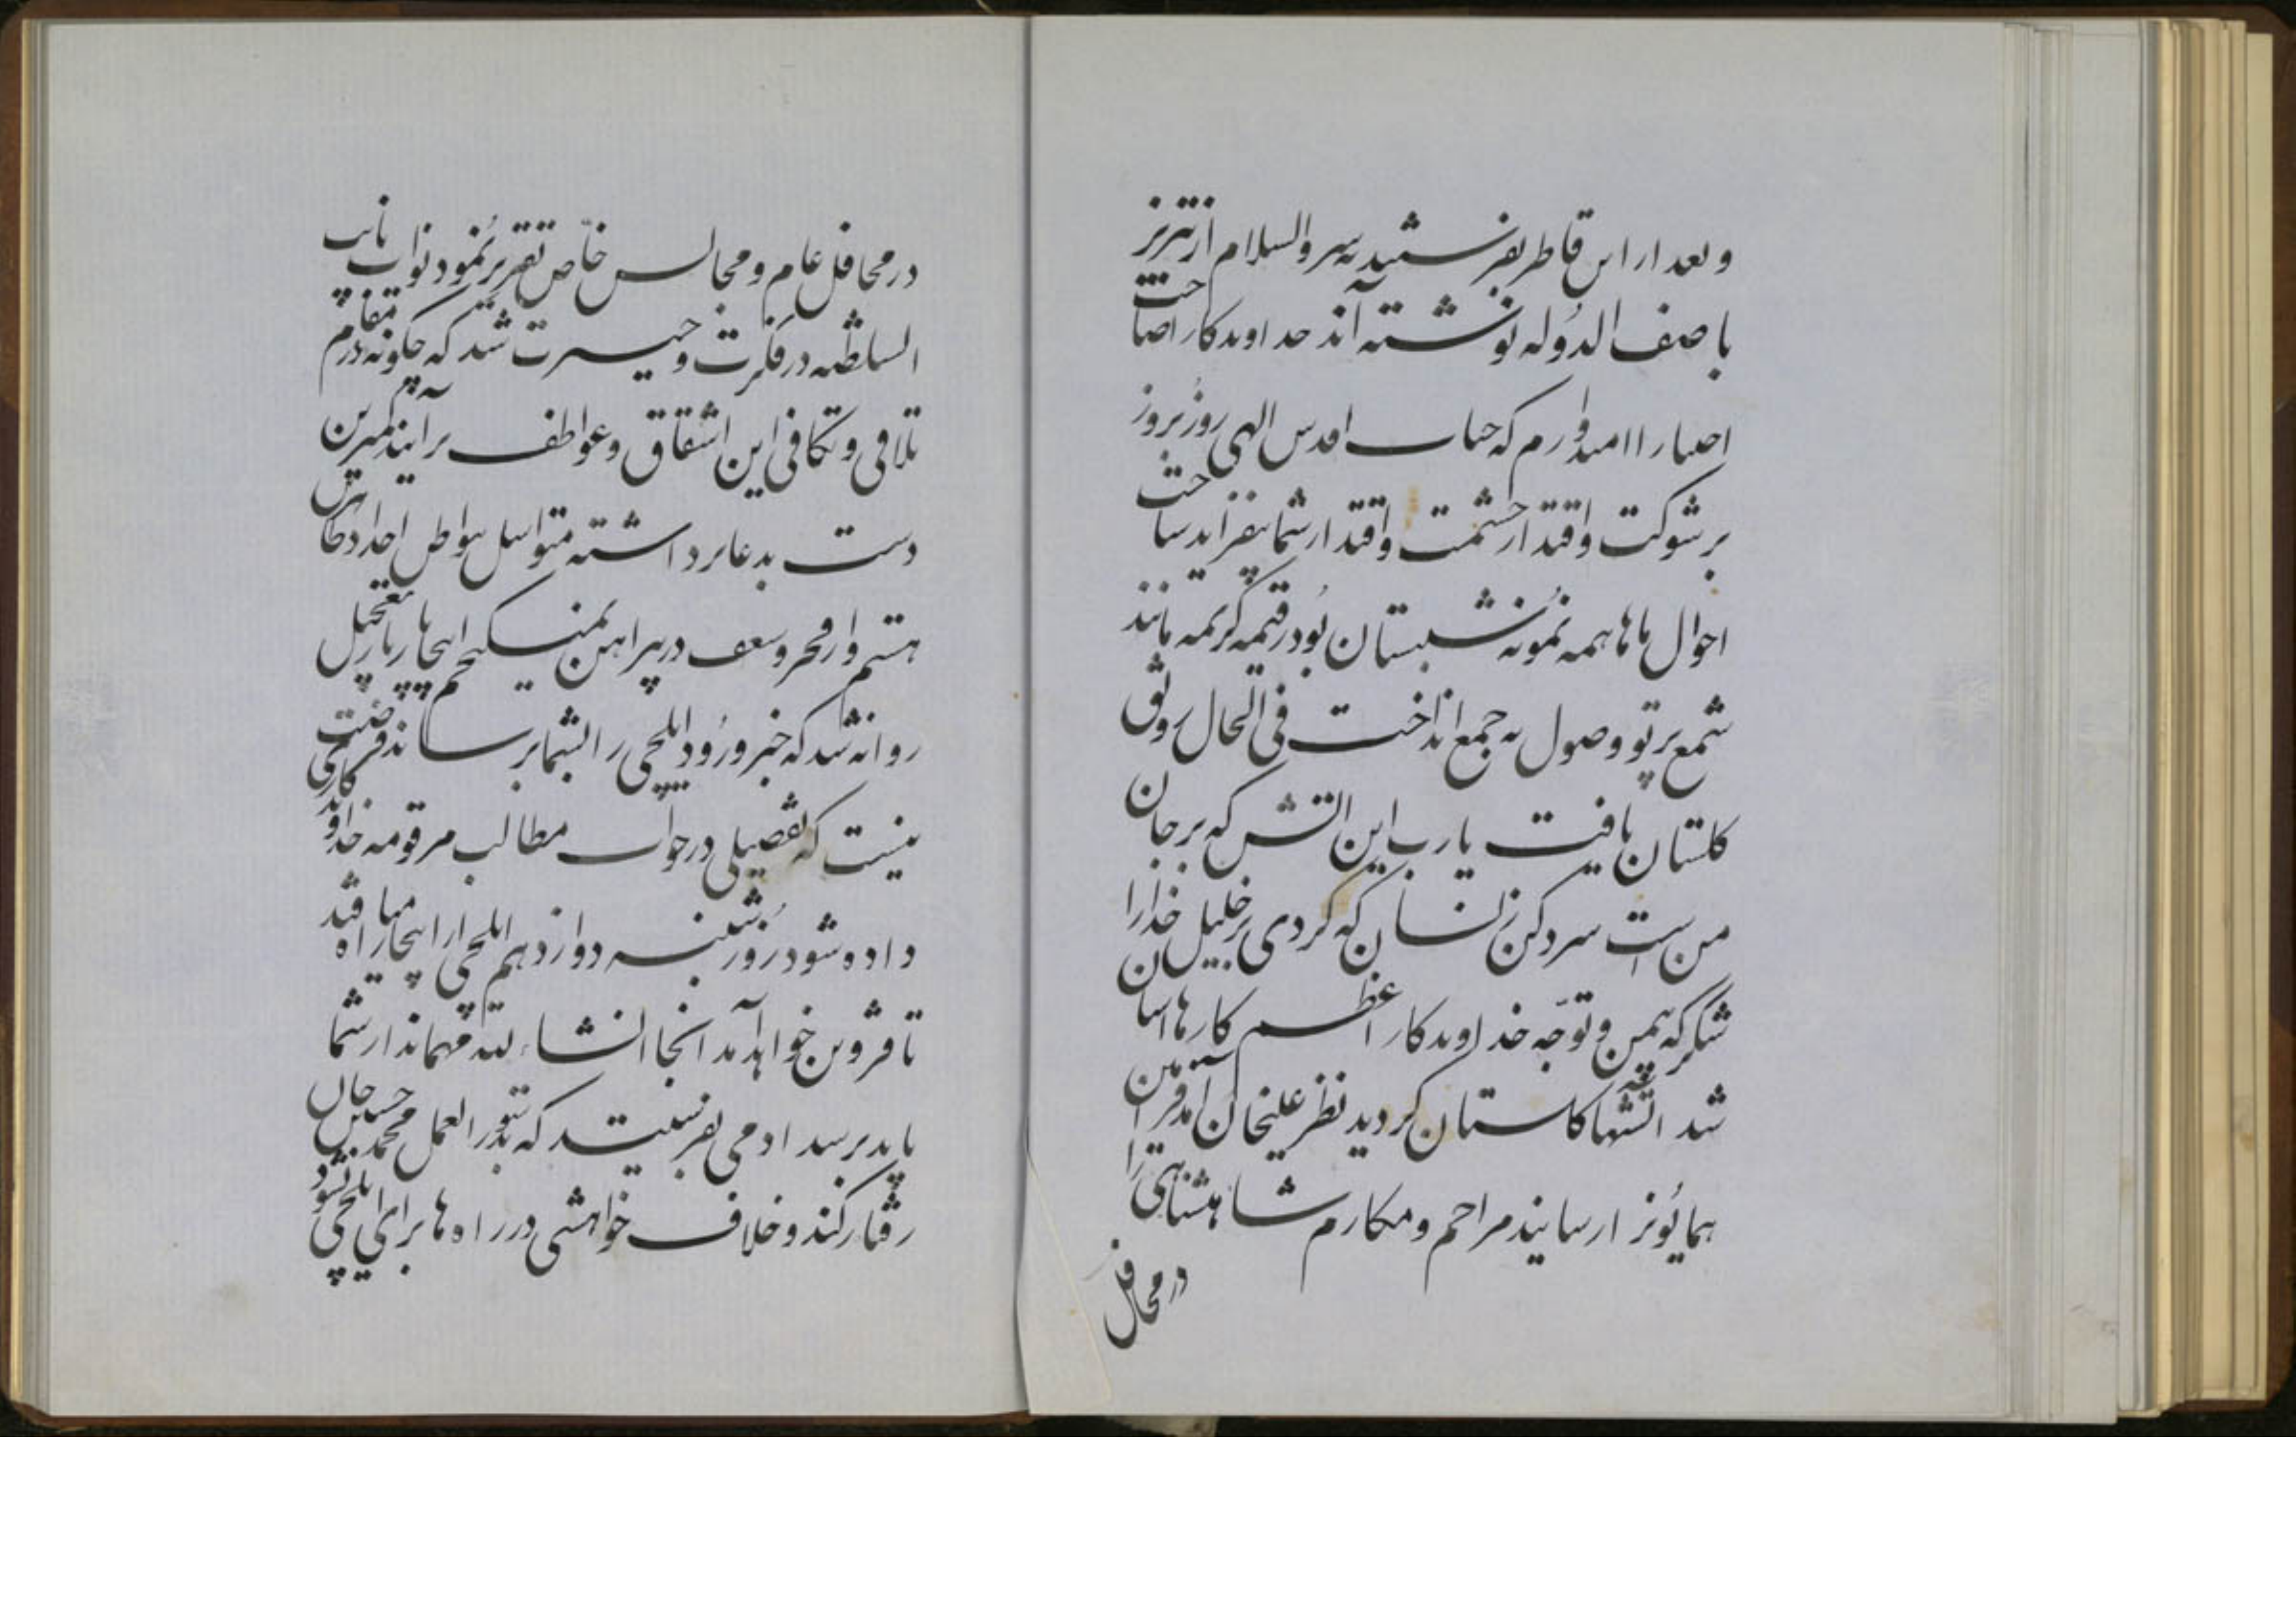 و بعد از این قاطر بفرستید به سر والسلام از تبریز
باصف الدوله نوشته‌اند خداوندکار صاحب
اختیارا امیدوارم که جناب اقدس الهی روز بروز
بر شوکت و اقتدار حشمت و اقتدار شما بیفزاید ساحت
احوال ماها همه نمونه شبستان بود رقیمه کریمه مانند
شمع پرتو وصول به جمع انداخت فی الحال رونق
گلستان یافت یا رب این آتش که بر جان
من است سرد کن زنسان که کردی بر خلیل خدا را
شکر که بیمن توجه خداوندکار اعظم کارها آسان
شد آتشها گلستان گردید نظر علیخان آمد فرامین
همایونرا رسانید مراحم و مکارم شاهنشاهی را
در محافل
در محافل عام و مجالس خاص تقریر نمود نواب نایب
السلطنه در فکرت و حیرت شد که چگونه در مقام
تلافی و تکافی این اشفاق و عواطف برآیند کمترین
دست بدعا برداشته متواسل بواطن اجداد
هستم و از فخر و شعف در پیراهن نمی‌گنجم اینجا چاپار بتعجیل
روانه شد که خبر ورود ایلچی را بشما برساند فرصت کارچی
نیست که تفصیلی در جواب مطالب مرقومه خداوند
داده شود روز شنبه دوازدهم ایلچی از اینجا راه میافتد
تا قزوین خواهد آمد آنجا انشاء لله مهماندار شما
باید برسد آدمی بفرستید که بدستورالعمل محمد حسین خان
رفتار کند و خلاف خواهشی در راه‌ها برای ایلچی نشود